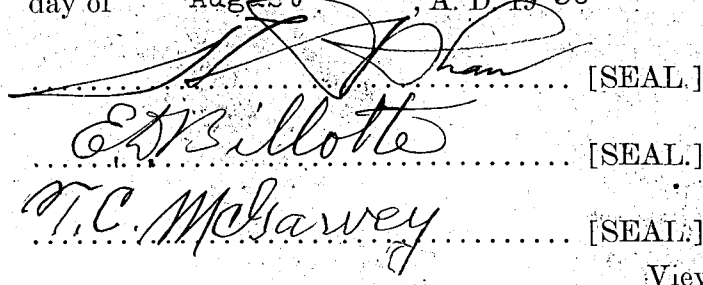 day of August , A. D. 19
[SEAL.]
E.D. Billotte [SEAL.]
T.C. McGarvey [SEAL.]
View